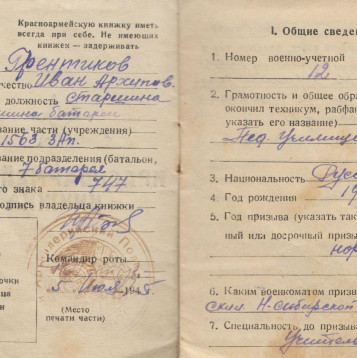 Красноармейскую книжку иметь
всегда при себе. Не имеющих
книжек — задерживать
Иван Архипов.
должность старшина
вание части (учреждения)
1563 Зап.
вание подразделения (батальон,
7 батарея
го знака 747
одпись владельца книжки
Командир роты
5 Июля 194
(Место
печати части)
I. Общие сведе
1. Номер военно-учетной
12
2. Грамотность и общее обра
окончил техникум, рабфа
указать его название)
Пед. Училищ
3. Национальность Русс
4. Год рождения 19
5. Год призыва (указать так
ный или досрочный призы
нор
6. Каким военкоматом призв
Н-Сибирской
7. Специальность до призыва
Учитель